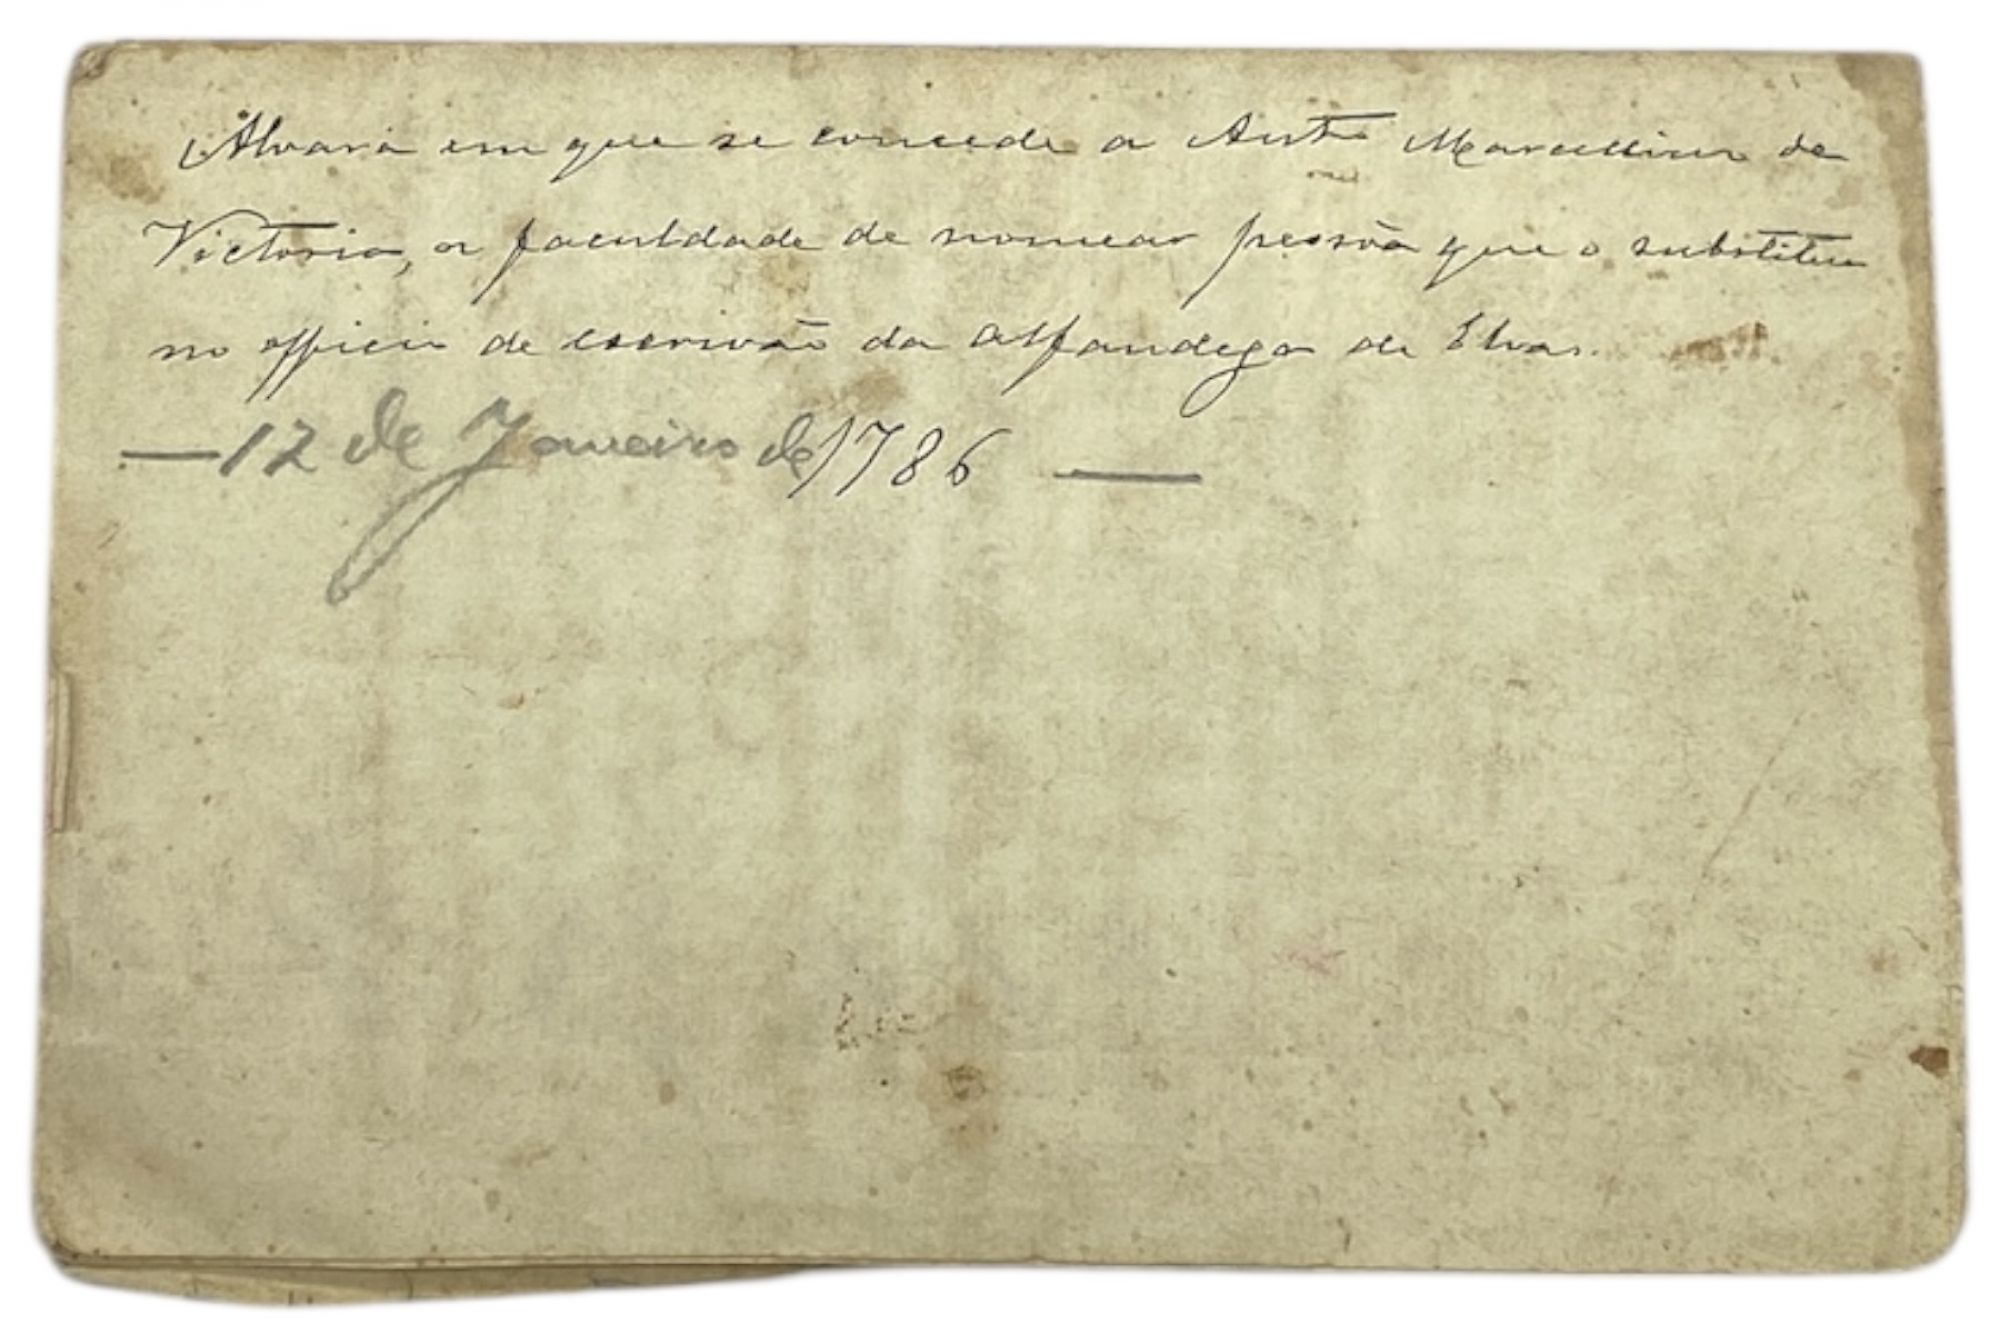 Alvará em que se concede a Antº Marcellino de
Victoria, a faculdade de nomear pessôa que o substitua
no officio de escrivão da alfandega de Elvas.
— 12 de Janeiro de 1786 —